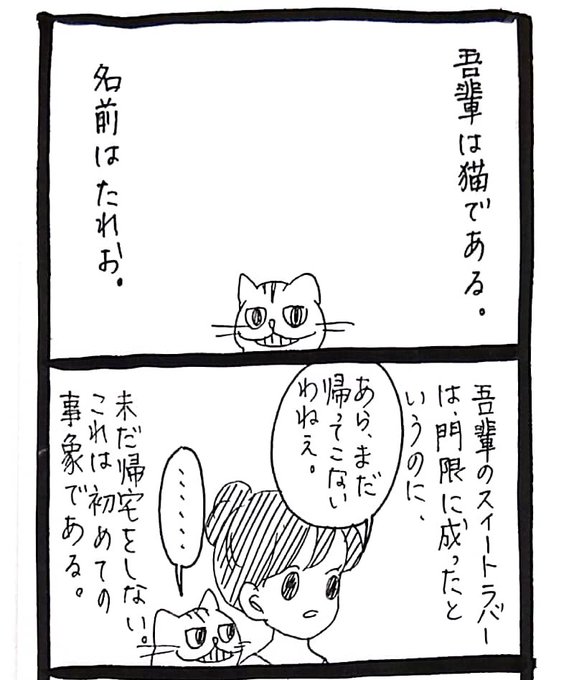 吾輩は猫である。
名前はたれお。
吾輩のスイートラバー
は、門限に成ったと
いうのに、
あら、まだ
帰ってこない
わねぇ。
・・・・・・
未だ帰宅をしない。
これは初めての
事象である。